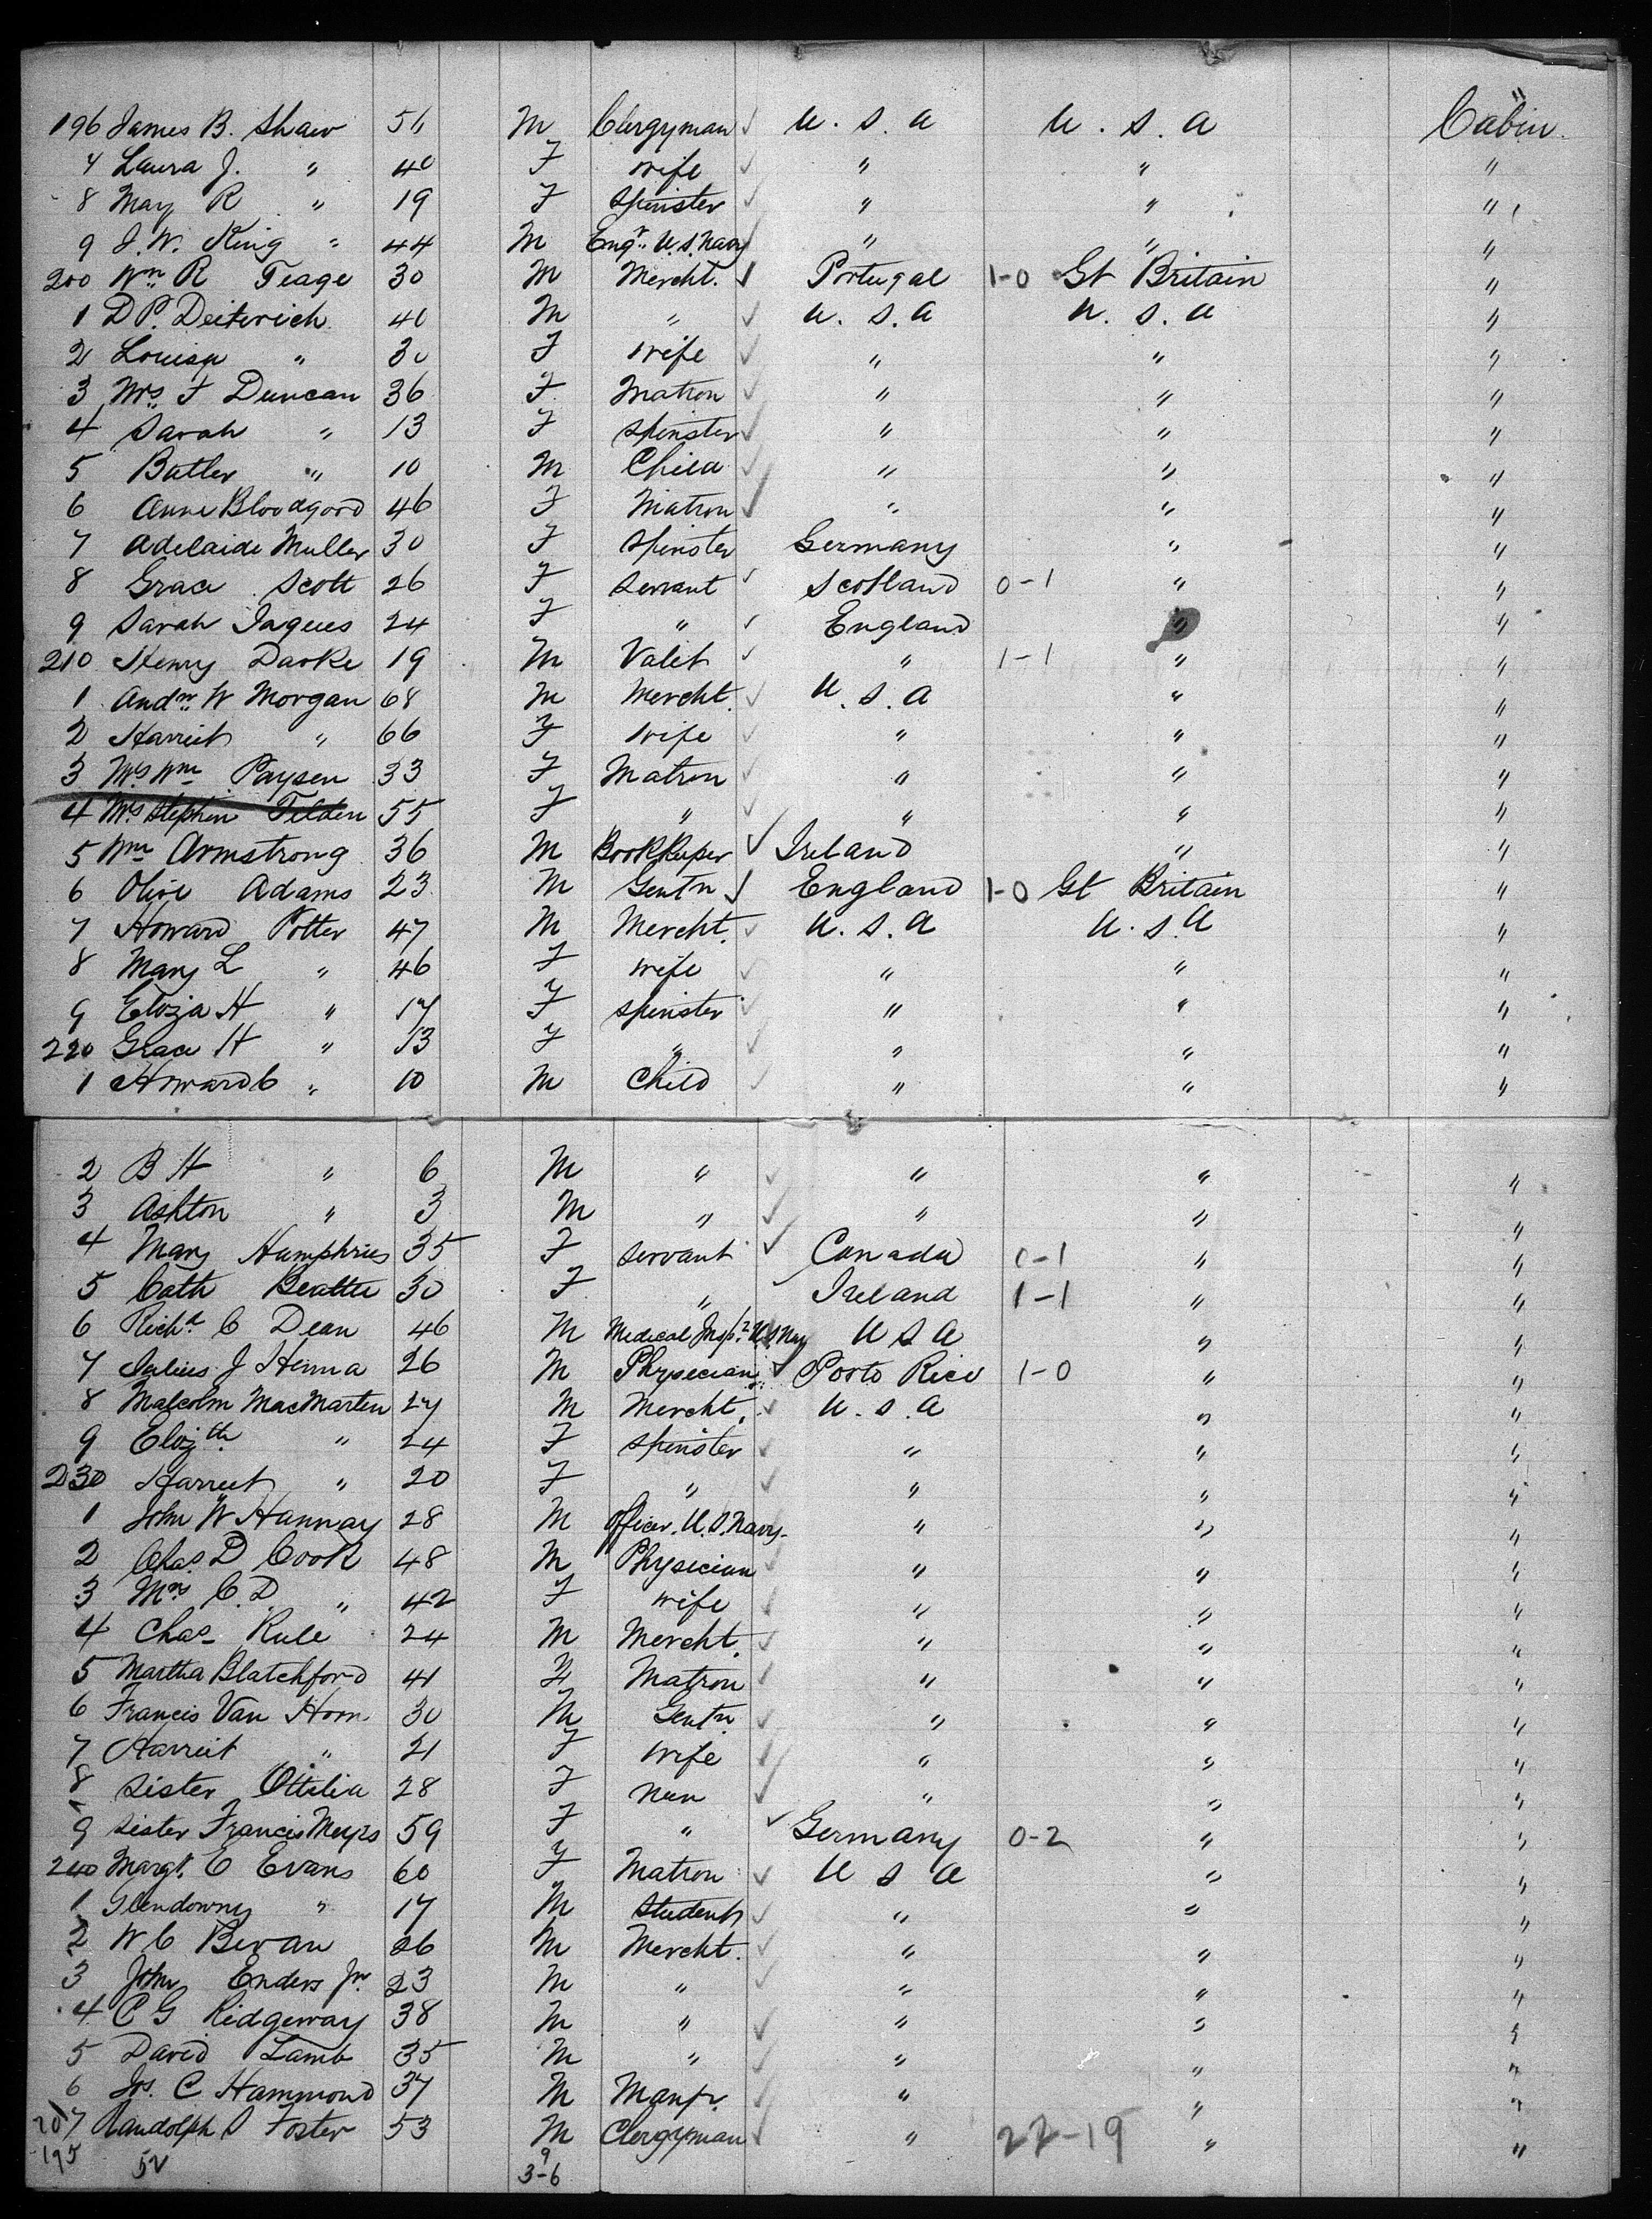 196 James B. Shaw 56 M Clergyman U.S.A U.S.A Cabin
7 Laura J. " 40 F wife " " "
8 May R " 19 F Spinster " " "
9 J. W. King " 44 M Engr. U.S. Navy " " "
200 Wm R Teage 30 M Mercht. Portugal 1-0 Gt Britain "
1 D P. Deiterich 40 M " U.S.A U.S.A "
2 Louisa " 30 F wife " " "
3 Mrs. F Duncan 36 F. Matron " " "
4 Sarah " 13 F Spinster " " "
5 Butler " 10 M Child " " "
6 Anne Bloodgood 46 F Matron " " "
7 Adelaide Muller 30 F Spinster Germany " "
8 Grace Scott 26 F Servant Scotland 0-1 " "
9 Sarah Jaques 24 F " England " "
210 Henry Darke 19 M Valet " 1-1 " "
1 Andw. W Morgan 68 M Mercht. U.S.A " "
2 Harriet " 66 F Wife " " "
3 Mrs Wm Paysen 33 F Matron " " "
4 Mrs Stephen Tilden 55 F " " " "
5 Wm Armstrong 36 M BookKeeper Ireland " "
6 Olive Adams 23 M Gentn England 1-0 Gt Britain "
7 Howard Potter 47 M Mercht. U.S.A U.S.A "
8 Mary L " 46 F wife " " "
9 Eliza H " 17 F Spinster " " "
220 Grace H " 13 F " " " "
1 Howard C " 10 M Child " " "
2 B H " 6 M " " " "
3 Ashton " 3 M " " " "
4 Mary Humphries 35 F Servant Canada 0-1 " "
5 Cath Beattie 30 F " Ireland 1-1 " "
6 Richd. C Dean 46 M Medical Insp. U.S. Nay U S A " "
7 Julius J Henna 26 M Physecian Porto Rico 1-0 " "
8 Malcolm MacMarten 27 M Mercht. U.S.A " "
9 Elizth. " 24 F Spinster " " "
230 Harriet " 20 F " " " "
1 John W Hannay 28 M Officer. U.S. Navy. " " "
2 Chas D Cook 48 M Physecian " " "
3 Mrs C. D. " 42 F wife " " "
4 Chas Rule 24 M Mercht. " " "
5 Martha Blatchford 41 F Matron " " "
6 Francis Van Horn 30 M Gentn " " "
7 Harriet " 21 F Wife " " "
8 Sister Ottilia 28 F Nun " " "
9 Sister Francis 59 F " Germany 0-2 " "
240 Margt. E Evans 60 F Matron U S A " "
1 Glendowny " 17 M Student " " "
2 W C Bevan 26 M Mercht. " " "
3 John Enders Jr. 23 M " " " "
4 C G Ridgeway 38 M " " " "
5 David Lamb 35 M " " " "
6 Jos. C Hammond 37 M Manfr. " " "
207 Randolph S Foster 53 M Clergyman " 22-19 " "
195 52 9
3-6